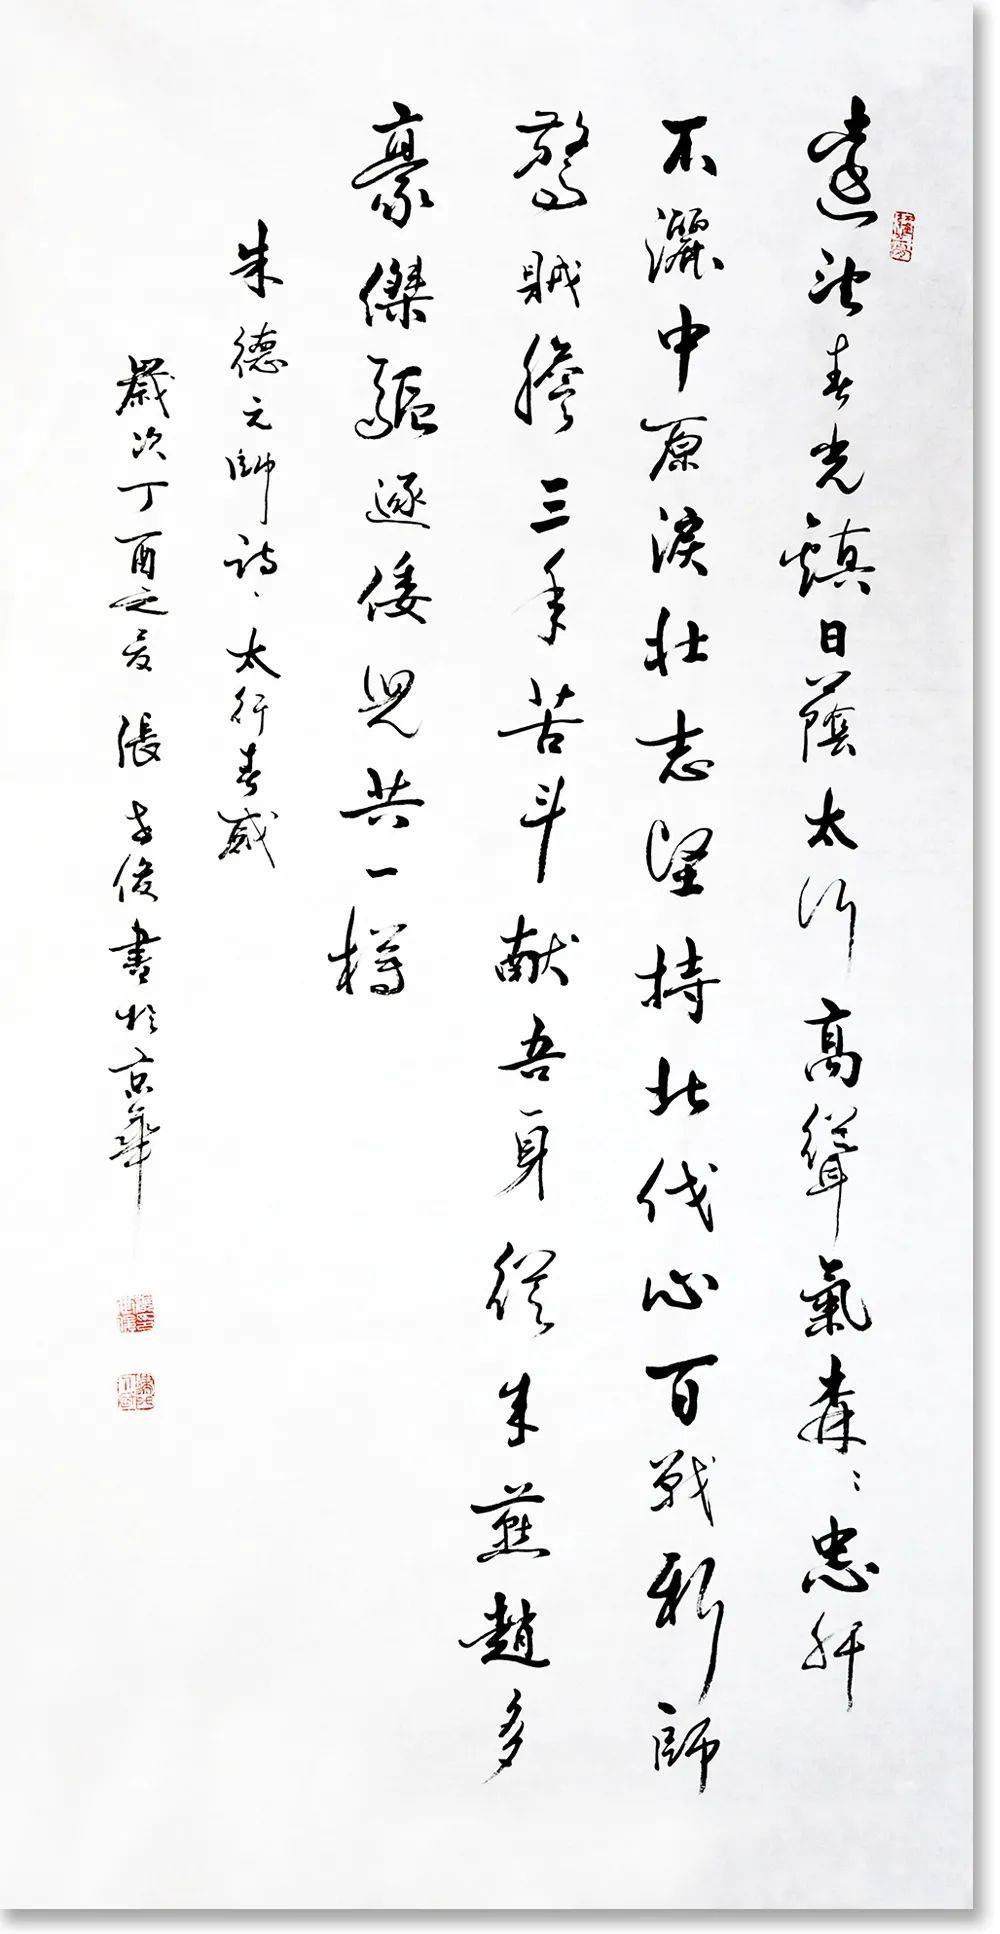 遠望春光鎮日蔭太行高聳氣森々忠肝
不灑中原淚壯志堅持北伐心百戰新師
驚賊膽三年苦斗献吾身從来燕趙多
豪傑驅逐倭兒共一樽
朱德元帥詩、太行春感
歲次丁酉之夏張世俊書於京華